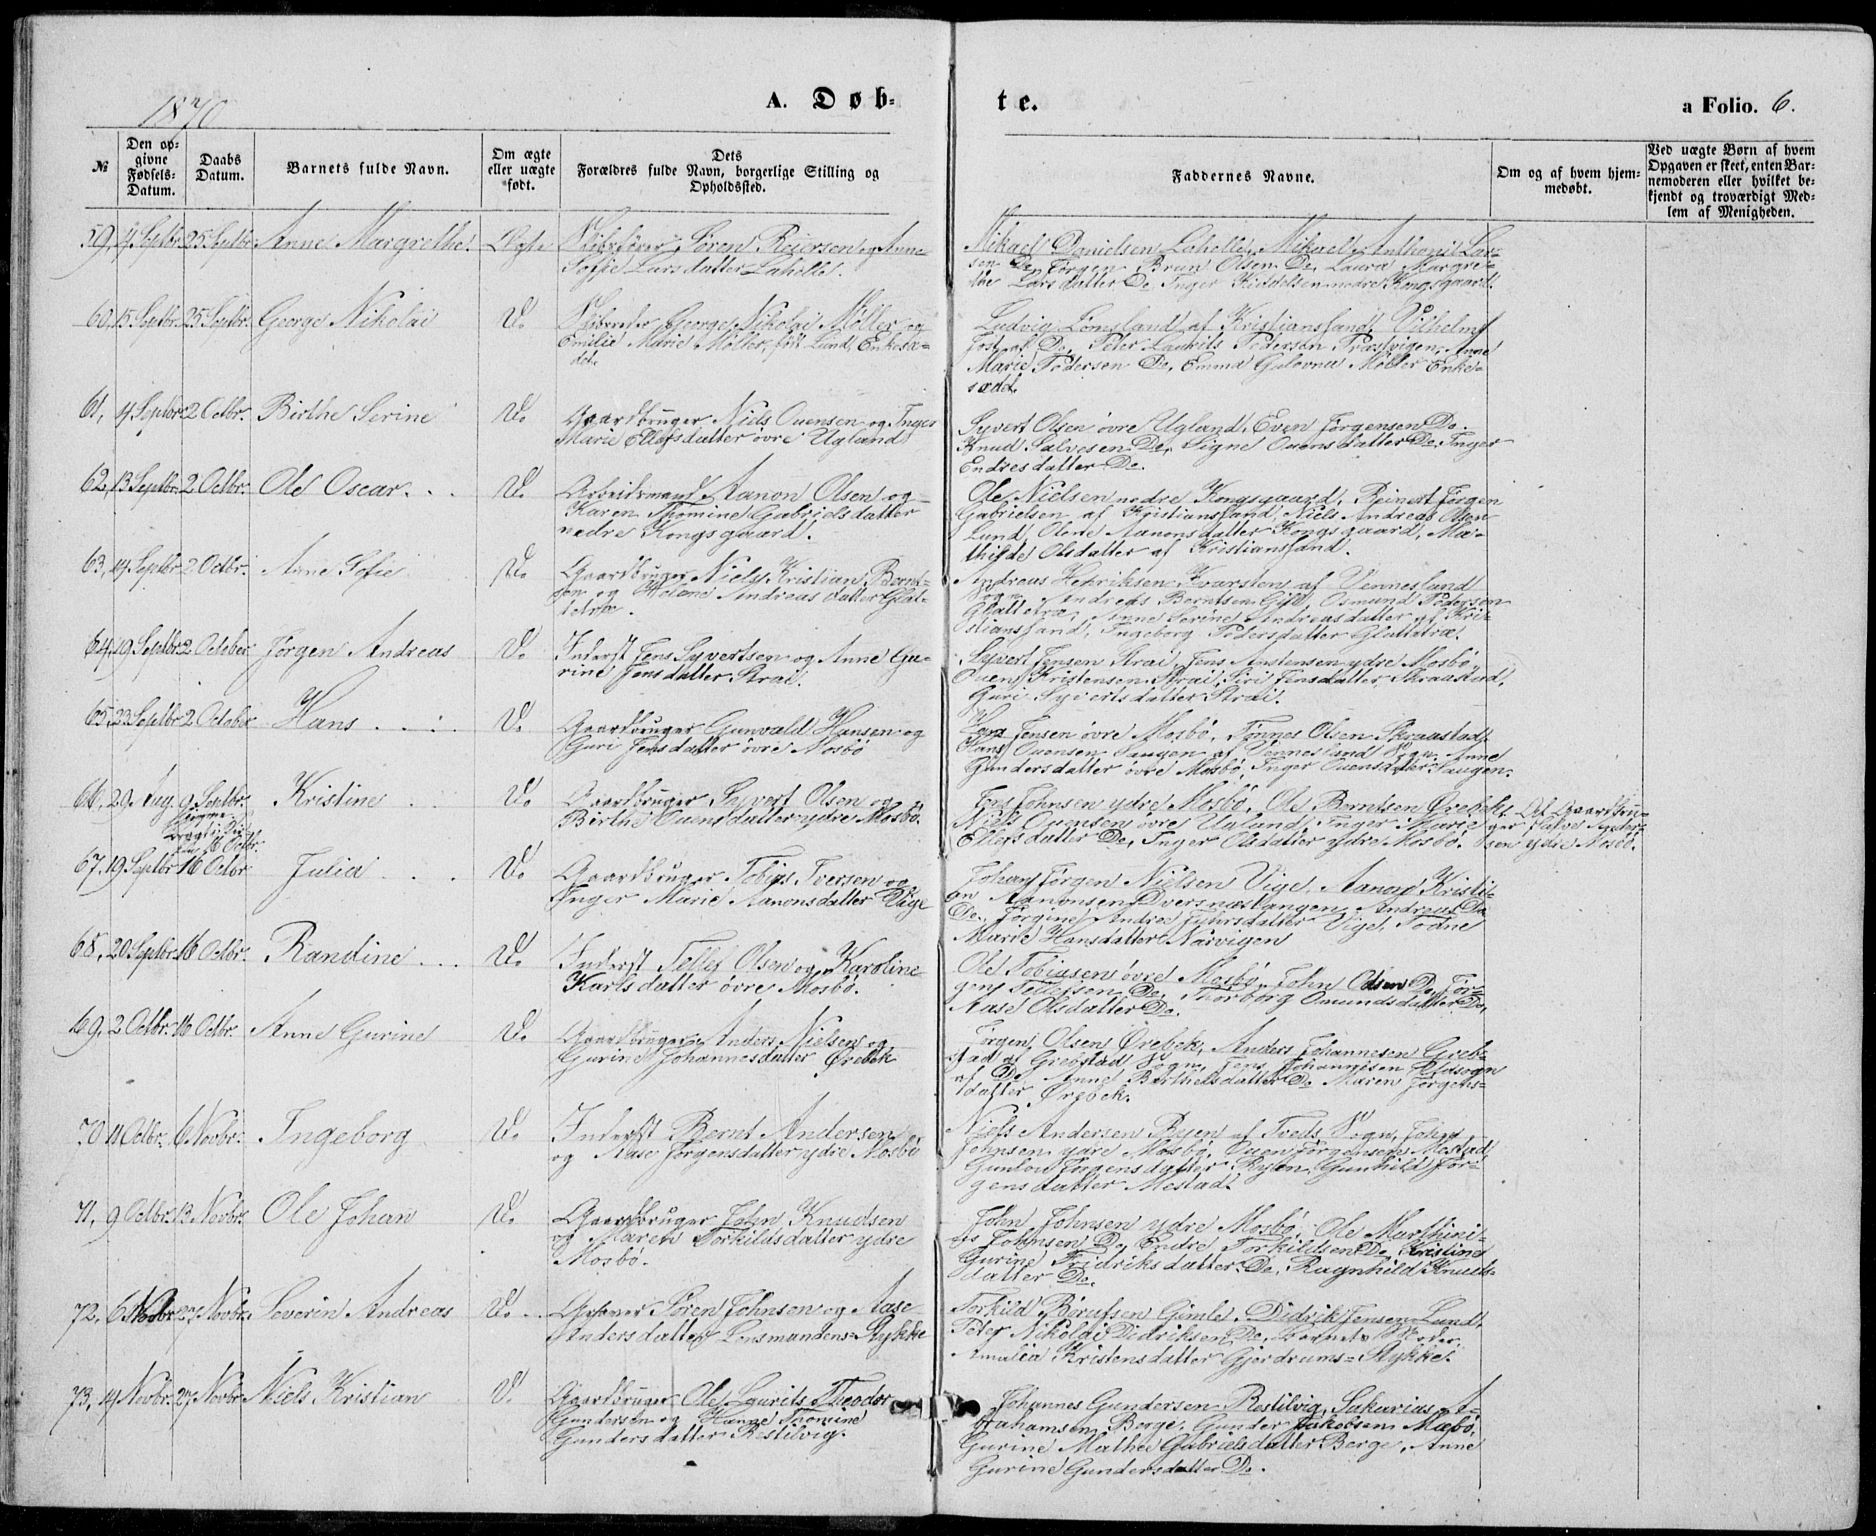 1870
A. Døb-
te.
a Folio. 6.
№
Den op-
givne
Fødsels-
Datum.
Daabs
Datum.
Barnets fulde Navn.
Om ægte
eller uægte
født.
Dets
Forældres fulde Navn, borgerlige Stilling og
Opholdssted.
Faddernes Navne.
Om og af hvem hjem-
medøbt.
Ved uægte Børn af hvem
Opgaven er skeet, enten Bar-
nemoderen eller hvilket be-
kjendt og troværdigt Med-
lem af Menigheden.
59, 4 Septbr. 25 Septbr. Anne Margrethe. Ægte Skibsfører Søren Reiersen og Anne
Sofie Larsdatter Lahelle.
Mikael Danielsen Lahelle, Mikael Anthoni Lar-
sen Do, Jørgen Brun Olsen Do, Laura Margre-
the Larsdatter Do, Inger Kiddelsen nedre Kongsgaard.
60, 15 Septbr. 25 Septbr. George Nikolai Do George Nikolai Møller og
Emilie Marie Møller, født Lund, Enkesæ-
det.
Ludvig Lønsland af Kristianssand, Vilhelm
Jost af Do, Peter Laurits Pedersen Præstvigen, Anne
Marie Pedersen Do, Emma Gulovna Møller Enke-
sædet.
61, 4 Septbr. 2 Octbr. Birthe Serine Do Gaardbruger Niels Ouensen og Inger
Marie Ellefsdatter øvre Ugland
Syvert Olsen øvre Ugland, Even Jørgensen Do.
Knud Salvesen Do, Signe Ouensdatter Do, Inger
Endresdatter Do.
62, 13 Septbr. 2 Octbr. Ole Oscar. Do Arbeidsmand Aanon Olsen og
Karen Thomine Gabrielsdatter
nedre Kongsgaard.
Ole Nielsen nedre Kongsgaard, Reinert Jørgen
Gabrielsen af Kristianssand, Niels Andreas Olsen
Lund, Olene Aanonsdatter Kongsgaard, Ma-
thilde Olsdatter af Kristianssand.
63, 19 Septbr. 2 Octbr. Anne Sofie Do Gaardbruger Niels Kristian Bernt-
sen og Helene Andreasdatter Glat-
tetræ.
Andreas Henriksen Kvarsten af Vennesland
Sogn, Andreas Berntsen Osmund Pedersen
Glattetræ, Anne Serine Andreasdatter af Kri-
stianssand, Ingeborg Pedersdatter Glattetræ.
64, 19 Septbr. 2 October Jørgen Andreas Do Inderst Jens Syvertsen og Anne Gu-
rine Jensdatter Strai.
Syvert Jensen Strai, Jens Anstensen ydre Mosbø,
Ouen Kristensen Strai, Siri Jensdatter Skraastad,
Guri Syvertsdatter Strai.
65, 23 Septbr. 2 October Hans Do Gaardbruger Gunvald Hansen og
Guri Jensdatter øvre Mosbø
Jensen øvre Mosbø, Tønnes Olsen Skraastad,
Hans Ouensen Haugen af Vennesland Sogn, Anne
Gundersdatter øvre Mosbø, Inger Ouensdatter Haugen.
66, 29 Aug. 9 Septbr. Kristine Do Gaardbruger Syvert Olsen og
Birthe Ouensdatter ydre Mosbø.
16 Octbr.
Jens Johnsen ydre Mosbø, Ole Berntsen Ørebek,
Niels Ouensen øvre Ugland, Inger Marie
Ellefsdatter Do, Inger Olsdatter ydre Mosbø.
Af Gaardbru-
ger Salve Ander-
sen ydre Mosbø.
67, 19 Septbr 16 Octbr Julia Do Gaardbruger Tobias Iversen og
Inger Marie Aanonsdatter Vige
Johan Jørgen Nielsen Vige, Aanon Kristi-
an Aanonsen Dversnestangen, Andreas Do
Do, Jørgine Andrea Vige, Todne
Marie Hansdatter Narvigen
68, 20 Septbr. 16 Octbr. Randine Do Inderst Tellef Olsen og Karoline
Karlsdatter øvre Mosbø.
Ole Tobiasen øvre Mosbø, John Olsen Do, Jør-
gen Tellefsen Do, Thorborg Omundsdatter Do,
Aase Olsdatter Do.
69, 2 Octbr. 16 Octbr. Anne Gurine Do Gaardbruger Anders Nielsen og
Gurine Johannesdatter Ørebek
Jørgen Olsen Ørebek, Anders Johannesen Greb-
stad af Grebstad Sogn, Jens Johannesen Oddsogn
af Do, Anne Berthelsdatter Do, Maren Jørgens-
datter Ørebek.
70 11 Octbr. 6 Novbr. Ingeborg Do Inderst Bernt Andersen
og Aase Jørgensdatter ydre Mosbø
Niels Andersen Ryen af Tveits Sogn, John
Johnsen ydre Mosbø, Ouen Jørgensen Mestad,
Gunlou Jørgensdatter Ryen, Gunhild Jør-
gensdatter Mestad.
71, 9 Octbr. 13 Novbr. Ole Johan Do Gaardbruger John Knudsen
og Maren Torkildsdatter ydre
Mosbø.
John Johnsen ydre Mosbø, Ole Marthini-
us Johnsen Do, Endre Torkildsen Do, Kristine
Gurine Fridriksdatter Do, Ragnhild Knuds-
datter Do.
72, 6 Novbr 27 Novbr. Severin Andreas Do Søren Johnsen og Aase
Andersdatter Lensmandens-Stykke
Torkild Børufsen Gimle, Didrik Jensen Lund,
Peter Nikolai Didriksen Do, Barnets Moder,
Amalia Kristensdatter Gjerdrums-Stykke.
73, 14 Novbr. 27 Novbr Niels Kristian Do Gaardbruger Ole Laurits Theodor
Gundersen og Hanne Thomine
Gundersdatter Bestilvig.
Johannes Gundersen Bestilvig, Sakarias A-
brahamsen Berge, Gunder Jakobsen Mæbø,
Gurine Mathea Gabrielsdatter Berge, Anne
Gurine Gundersdatter Do.